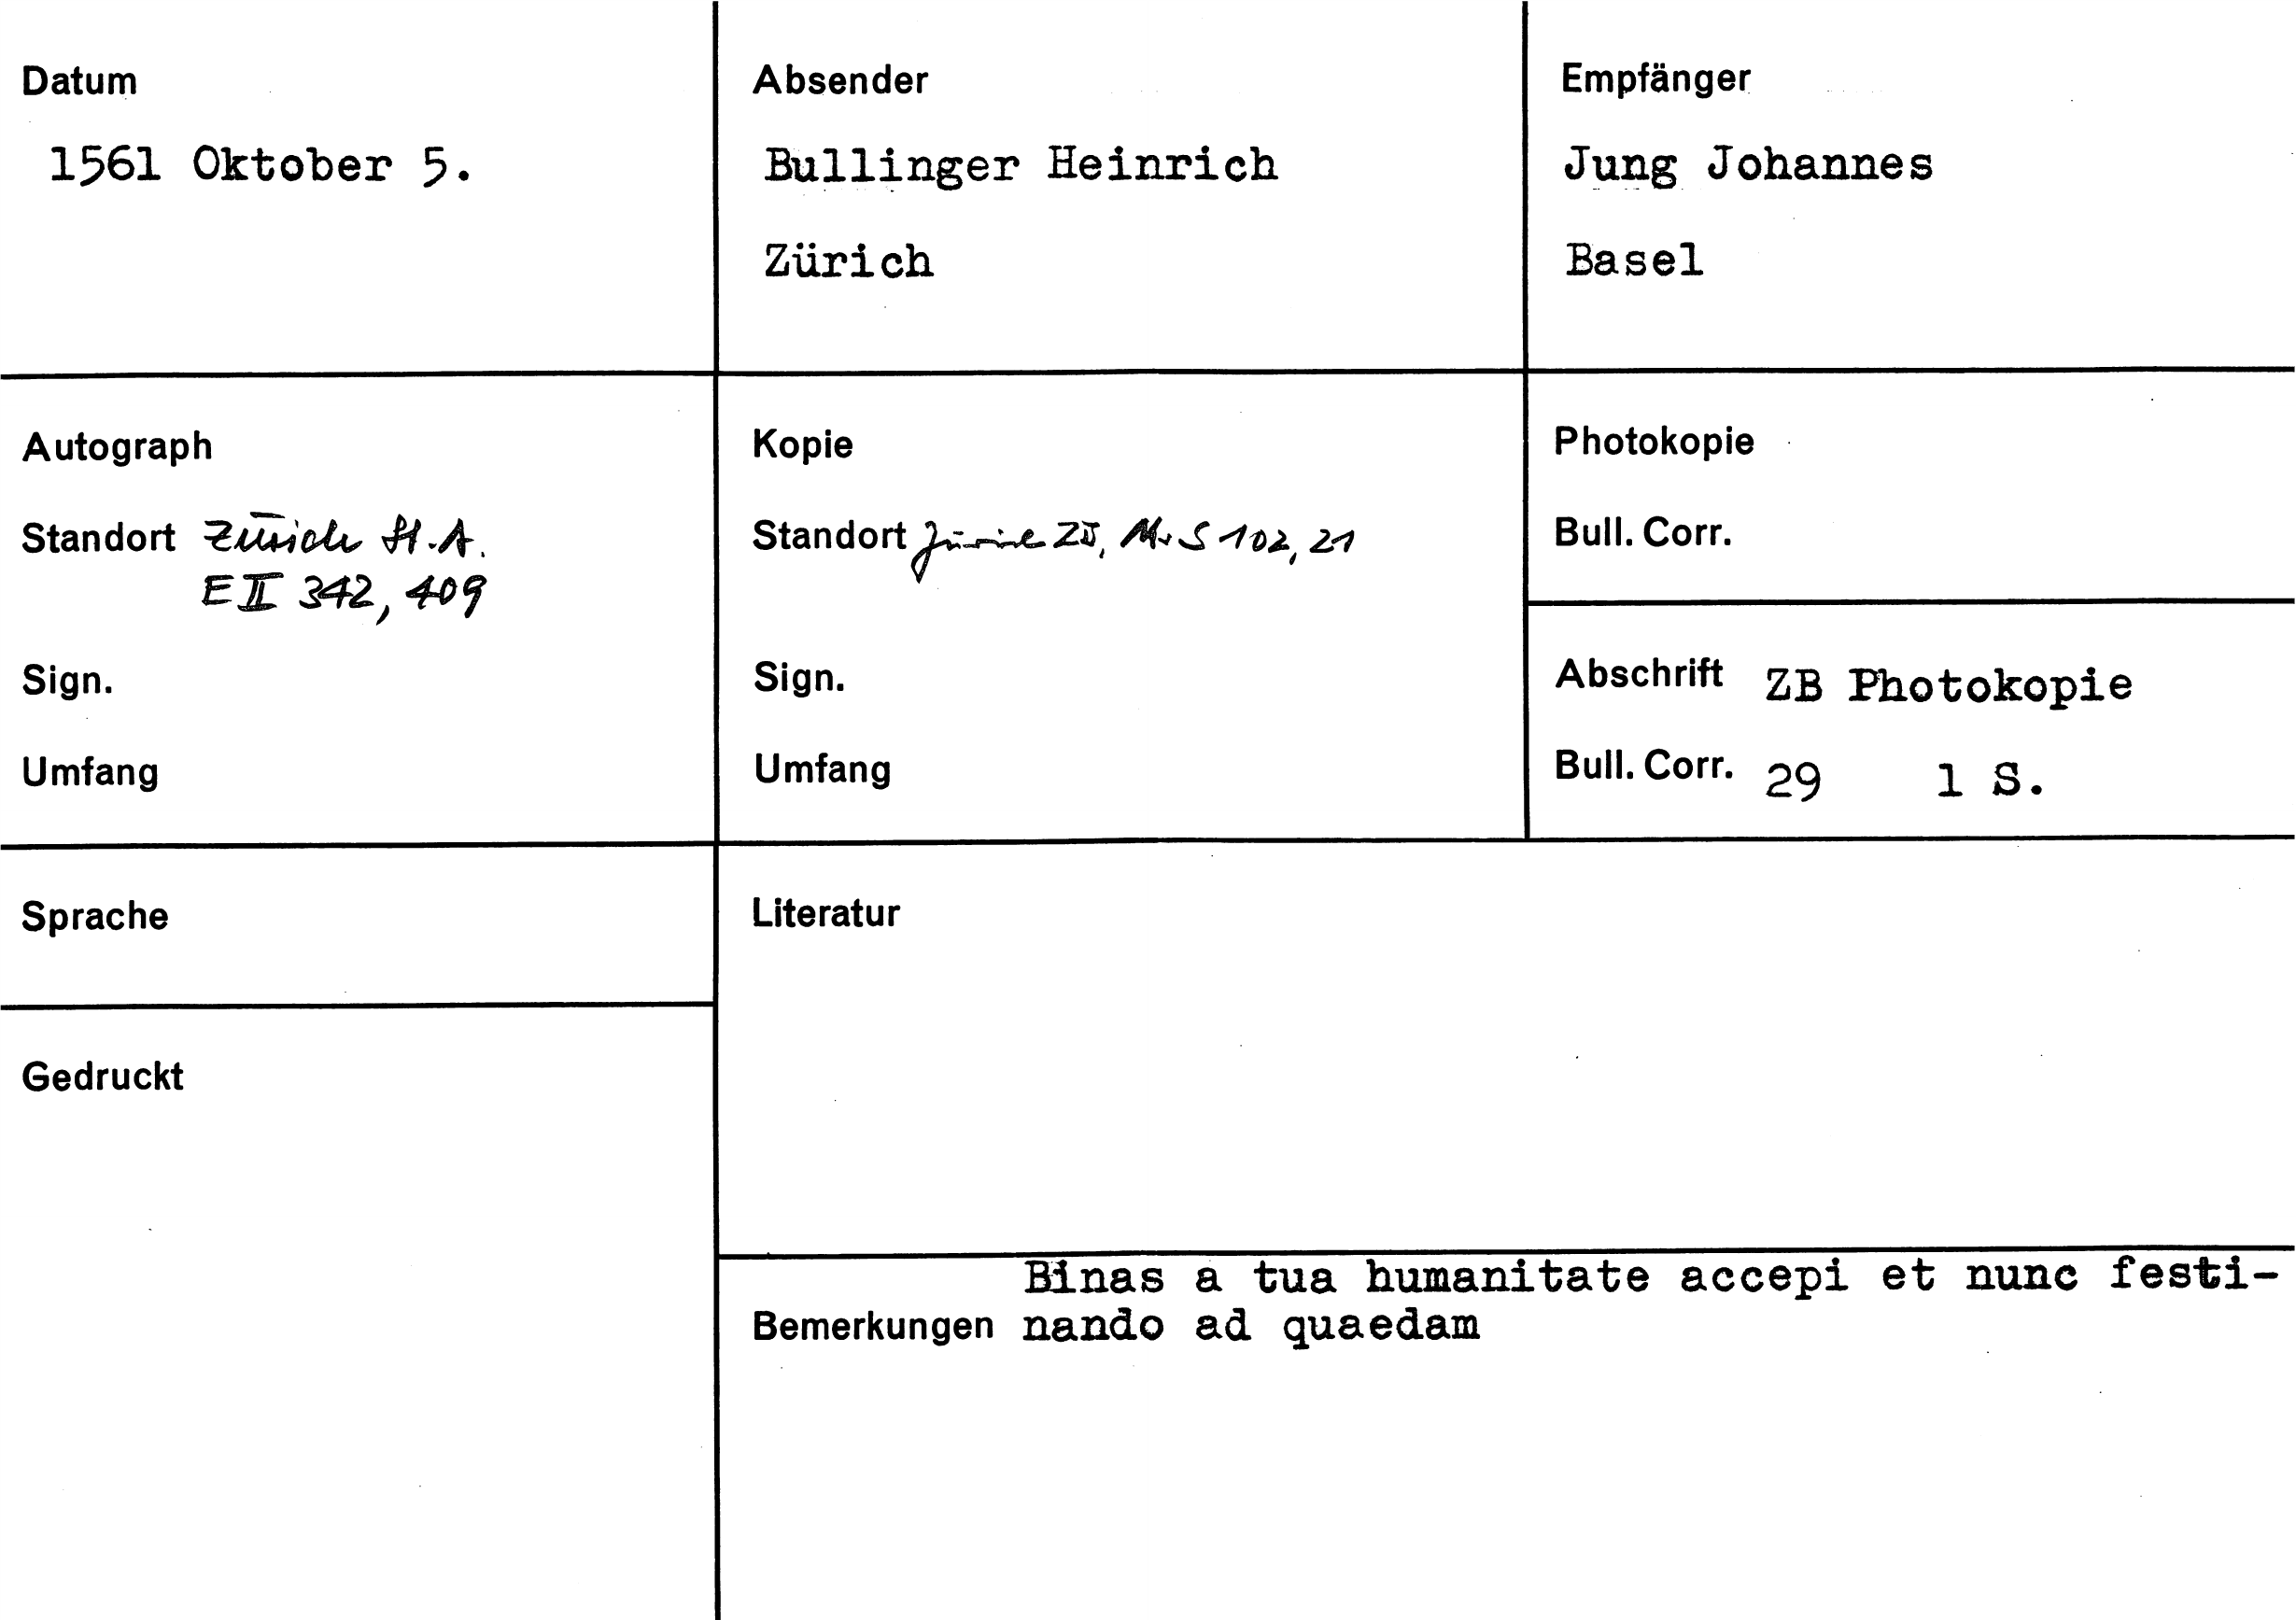 Datum
1561 Oktober 5.
Absender
Bullinger Heinrich
Zürich
Empfänger
Jung Johannes
Basel
Autograph
Standort Zürich St.A.
E II 342, 409
Sign.
Umfang
Kopie
Standort Zürich ZB, Ms S 102, 21
Sign.
Umfang
Photokopie
Bull. Corr.
Abschrift ZB Photokopie
Bull. Corr. 29 1 S.
Sprache
Gedruckt
Literatur
Binas a tua humanitate accepi et nunc festi-
Bemerkungen nando ad quaedam